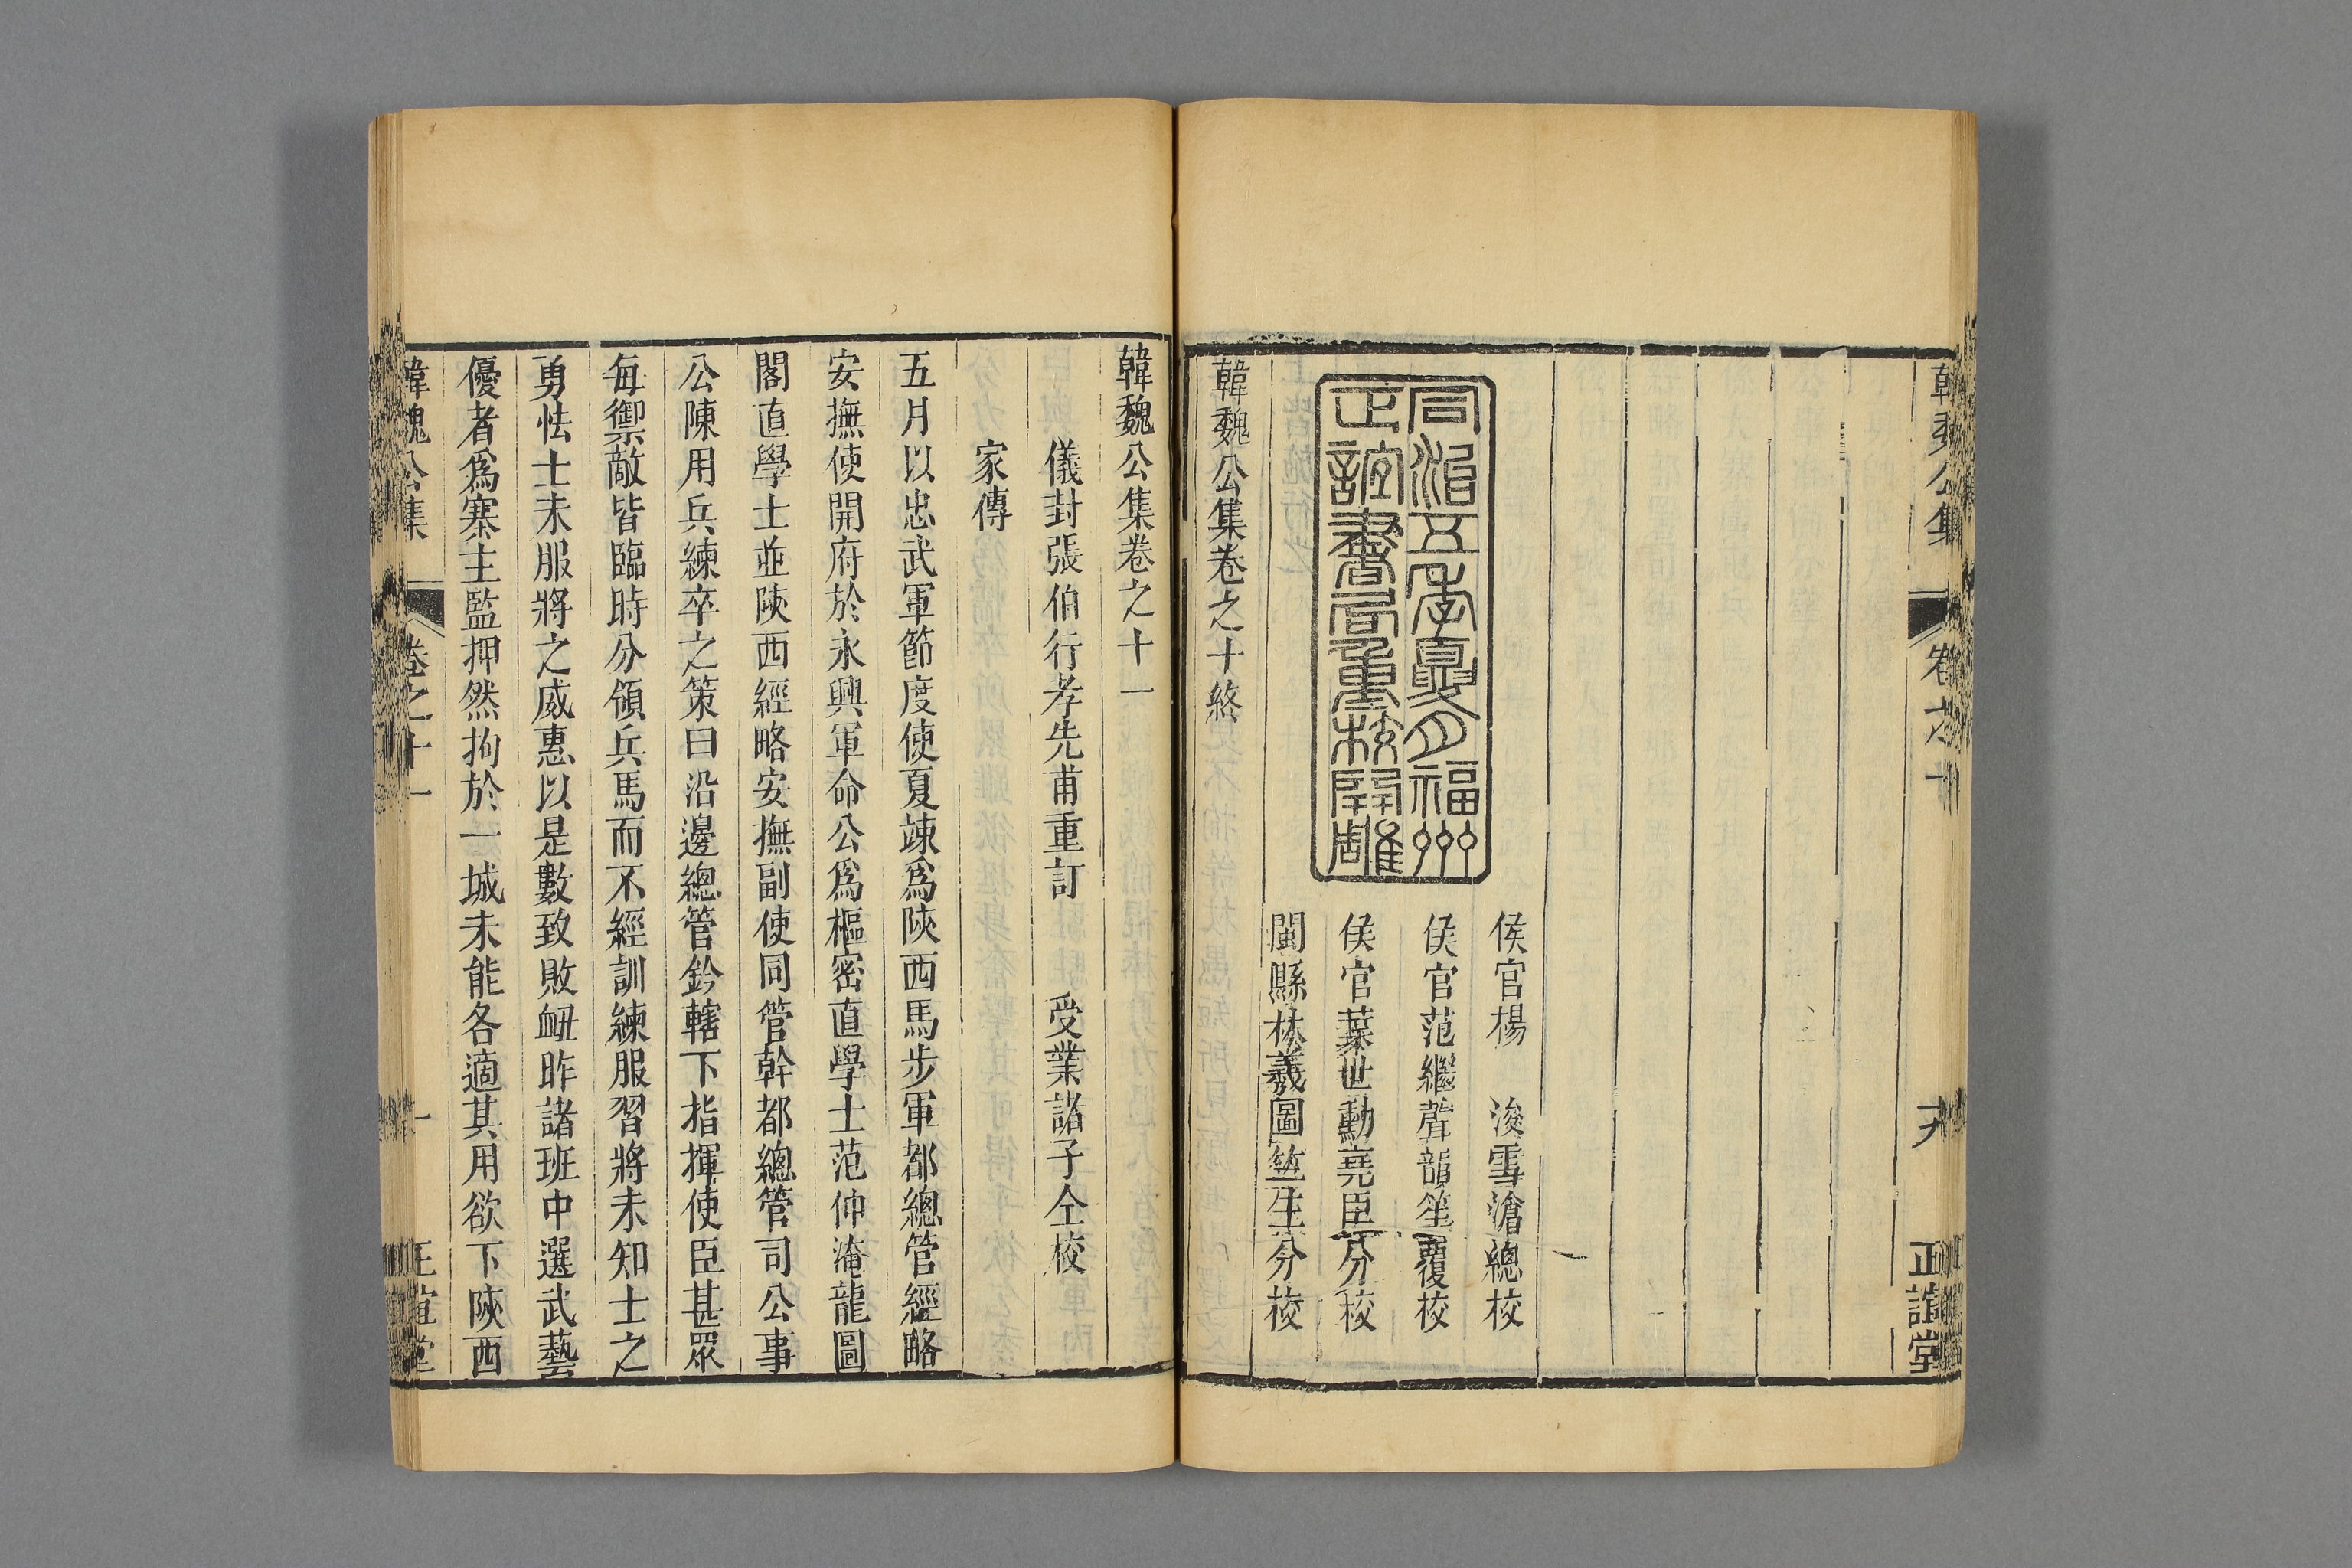 韓魏公集
卷之十
正誼堂
同治五年夏月福州
正誼書局重校開雕
侯官楊　浚雪滄總校
侯官范繼聲韻笙覆校
侯官葉世勳堯臣分校
閩縣林羲圖竺生分校
韓魏公集卷之十終
韓魏公集卷之十一
儀封張伯行孝先甫重訂　受業諸子仝校
家傳
五月以忠武軍節度使夏竦爲陝西馬步軍都總管經略
安撫使開府於永興軍命公爲樞密直學士范仲淹龍圖
閣直學士並陝西經略安撫副使同管幹都總管司公事
公陳用兵練卒之策曰沿邊總管鈐轄下指揮使臣甚眾
每禦敵皆臨時分領兵馬而不經訓練服習將未知士之
勇怯士未服將之威惠以是數致敗衄昨諸班中選武藝
優者爲寨主監押然拘於一城未能各適其用欲下陝西
韓魏公集
卷之十一
一
正誼堂